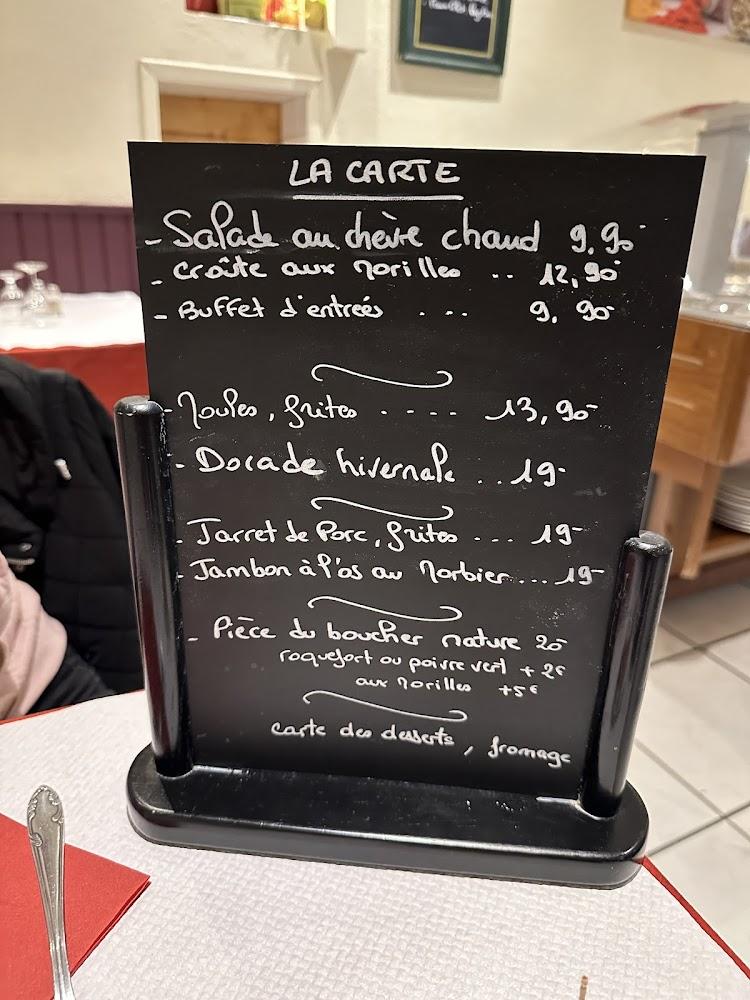 LA CARTE
- Salade au chèvre chaud 9,90
- croûte aux morilles .. 12,90
- Buffet d'entreés ... 9,90
- Moules, frites .... 13,90
- Dorade hivernale .. 19-
- Jarret de Porc, frites ... 19-
- Jambon à l'os au Morbier ... 19-
- Pièce du boucher nature 20-
roquefort ou poivre vert + 2€
aux morilles +5€
carte des desserts, fromage